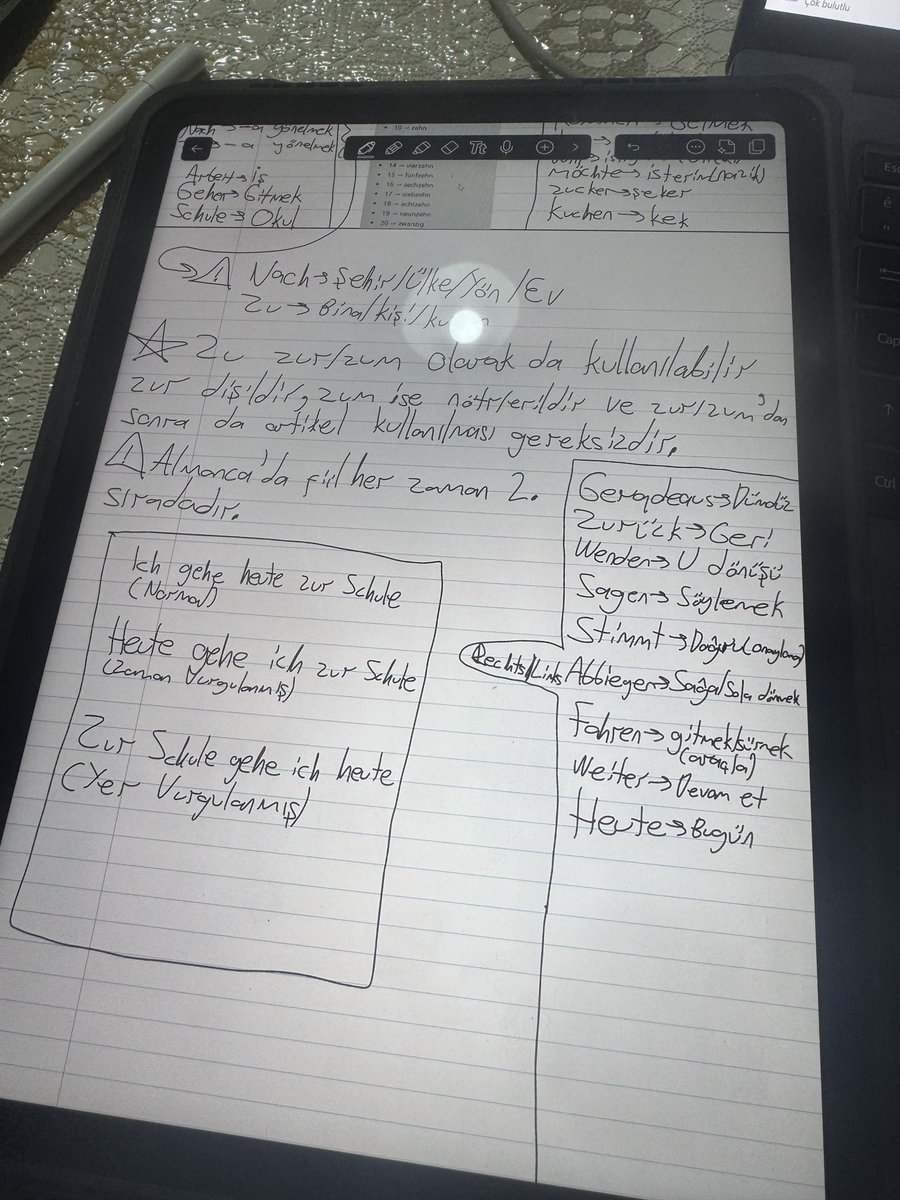 Çok bulutlu
Nach → -a yönelmek
→ -a yönelmek
Arbeit → iş
Gehen → Gitmek
Schule → Okul
10 → zehn
14 → vierzehn
15 → fünfzehn
16 → sechzehn
17 → siebzehn
18 → achtzehn
19 → neunzehn
20 → zwanzig
Tt
möchte → isterim(nazik)
zucker → şeker
kuchen → kek
⚠ Nach → Şehir/Ülke/Yön/Ev
Zu → Bina/kişi/
☆ Zu zur/zum olarak da kullanılabilir
zur dişildir, zum ise nötr/erildir ve zur/zum'dan
sonra da artikel kullanılması gereksizdir.
⚠ Almanca'da fiil her zaman 2.
sıradadır.
Ich gehe heute zur Schule
(Normal)
Heute gehe ich zur Schule
(Zaman Vurgulanmış)
Zur Schule gehe ich heute
(Yer Vurgulanmış)
Geradeaus → Dümdüz
Zurück → Geri
Wenden → U dönüşü
Sagen → Söylemek
Stimmt → Doğru(onaylama)
Rechts/Links Abbiegen → Sağa/Sola dönmek
Fahren → gitmek/sürmek
(araçla)
Weiter → Devam et
Heute → Bugün
Esc
é
Cap
Ctrl